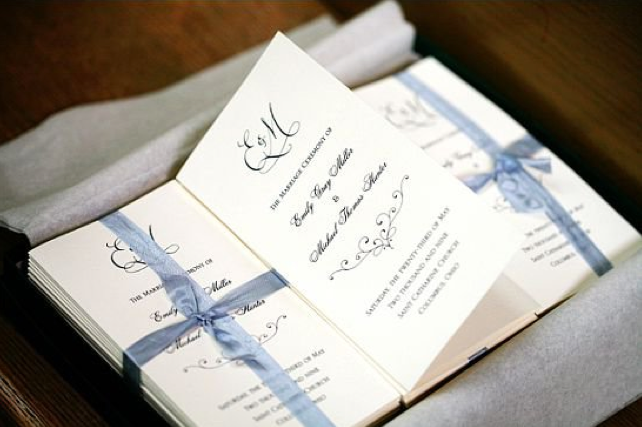 E&M
The Marriage Ceremony of
Emily Gray Miller
&
Michael Thomas Hunter
Saturday, the twenty-third of May
Two thousand and nine
Saint Catharine Church
Columbus, Ohio
E&M
The Marriage Ceremony of
Emily Miller
Michael Hunter
Saturday, the twenty-third of May
Two thousand and nine
Saint Catharine Church
Columbus, Ohio
Two thousand
Saint Catharine Church
Columbus, Ohio